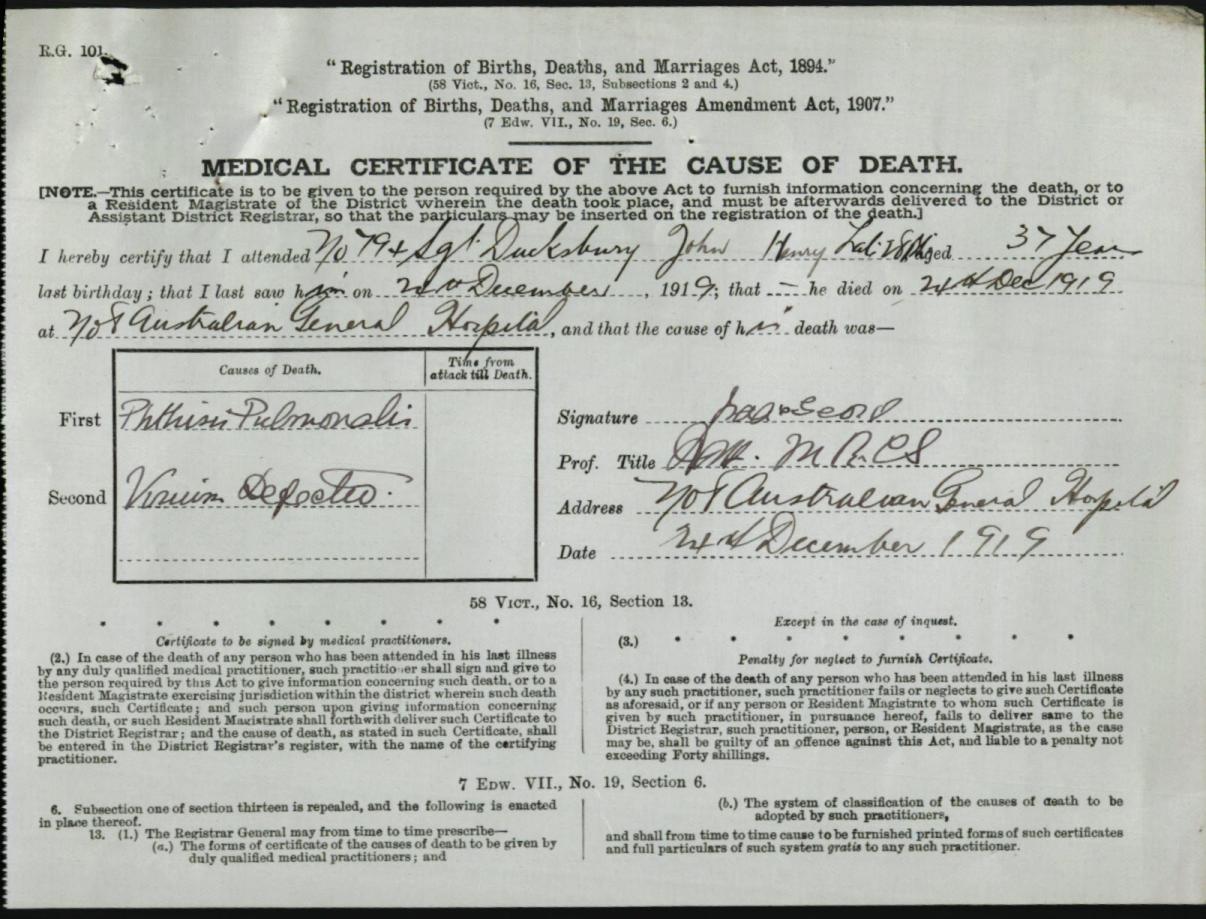 R.G. 101.
"Registration of Births, Deaths, and Marriages Act, 1894."
(58 Vict., No. 16, Sec. 13, Subsections 2 and 4.)
"Registration of Births, Deaths, and Marriages Amendment Act, 1907."
(7 Edw. VII., No. 19, Sec. 6.)
MEDICAL CERTIFICATE OF THE CAUSE OF DEATH.
[NOTE.—This certificate is to be given to the person required by the above Act to furnish information concerning the death, or to
a Resident Magistrate of the District wherein the death took place, and must be afterwards delivered to the District or
Assistant District Registrar, so that the particulars may be inserted on the registration of the death.]
I hereby certify that I attended No 794 Sgt Ducksbury John Henry aged 37 Year
last birthday; that I last saw him on December, 1919; that — he died on 24th Dec 1919
at No 8 Australian General Hospital, and that the cause of his death was—
Causes of Death. Time from
attack till Death.
First Phthisis Pulmonalis
Second
Signature
Prof. Title M R C S
Address No 8 Australian General Hospital
Date 24th December 1919
58 VICT., No. 16, Section 13.
* * * * * * * *
Certificate to be signed by medical practitioners.
(2.) In case of the death of any person who has been attended in his last illness
by any duly qualified medical practitioner, such practitioner shall sign and give to
the person required by this Act to give information concerning such death, or to a
Resident Magistrate exercising jurisdiction within the district wherein such death
occurs, such Certificate; and such person upon giving information concerning
such death, or such Resident Magistrate shall forthwith deliver such Certificate to
the District Registrar; and the cause of death, as stated in such Certificate, shall
be entered in the District Registrar's register, with the name of the certifying
practitioner.
Except in the case of inquest.
(3.) * * * * * * * *
Penalty for neglect to furnish Certificate.
(4.) In case of the death of any person who has been attended in his last illness
by any such practitioner, such practitioner fails or neglects to give such Certificate
as aforesaid, or if any person or Resident Magistrate to whom such Certificate is
given by such practitioner, in pursuance hereof, fails to deliver same to the
District Registrar, such practitioner, person, or Resident Magistrate, as the case
may be, shall be guilty of an offence against this Act, and liable to a penalty not
exceeding Forty shillings.
7 EDW. VII., No. 19, Section 6.
6. Subsection one of section thirteen is repealed, and the following is enacted
in place thereof.
13. (1.) The Registrar General may from time to time prescribe—
(a.) The forms of certificate of the causes of death to be given by
duly qualified medical practitioners; and
(b.) The system of classification of the causes of death to be
adopted by such practitioners,
and shall from time to time cause to be furnished printed forms of such certificates
and full particulars of such system gratis to any such practitioner.